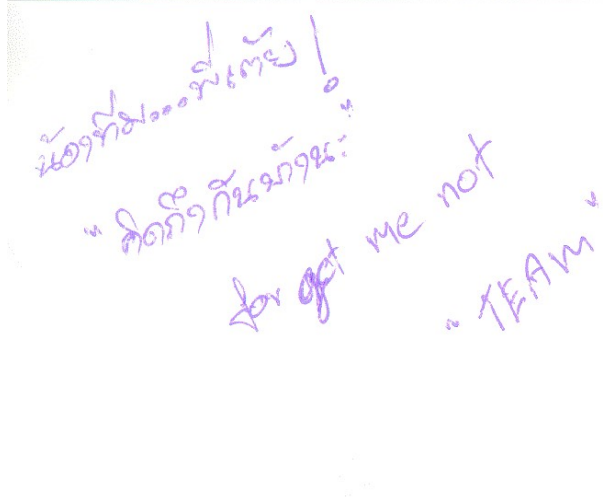 น้องทีม...พี่เต้ย!
"คิดถึงกันบ้างนะ"
forget me not
"TEAM"